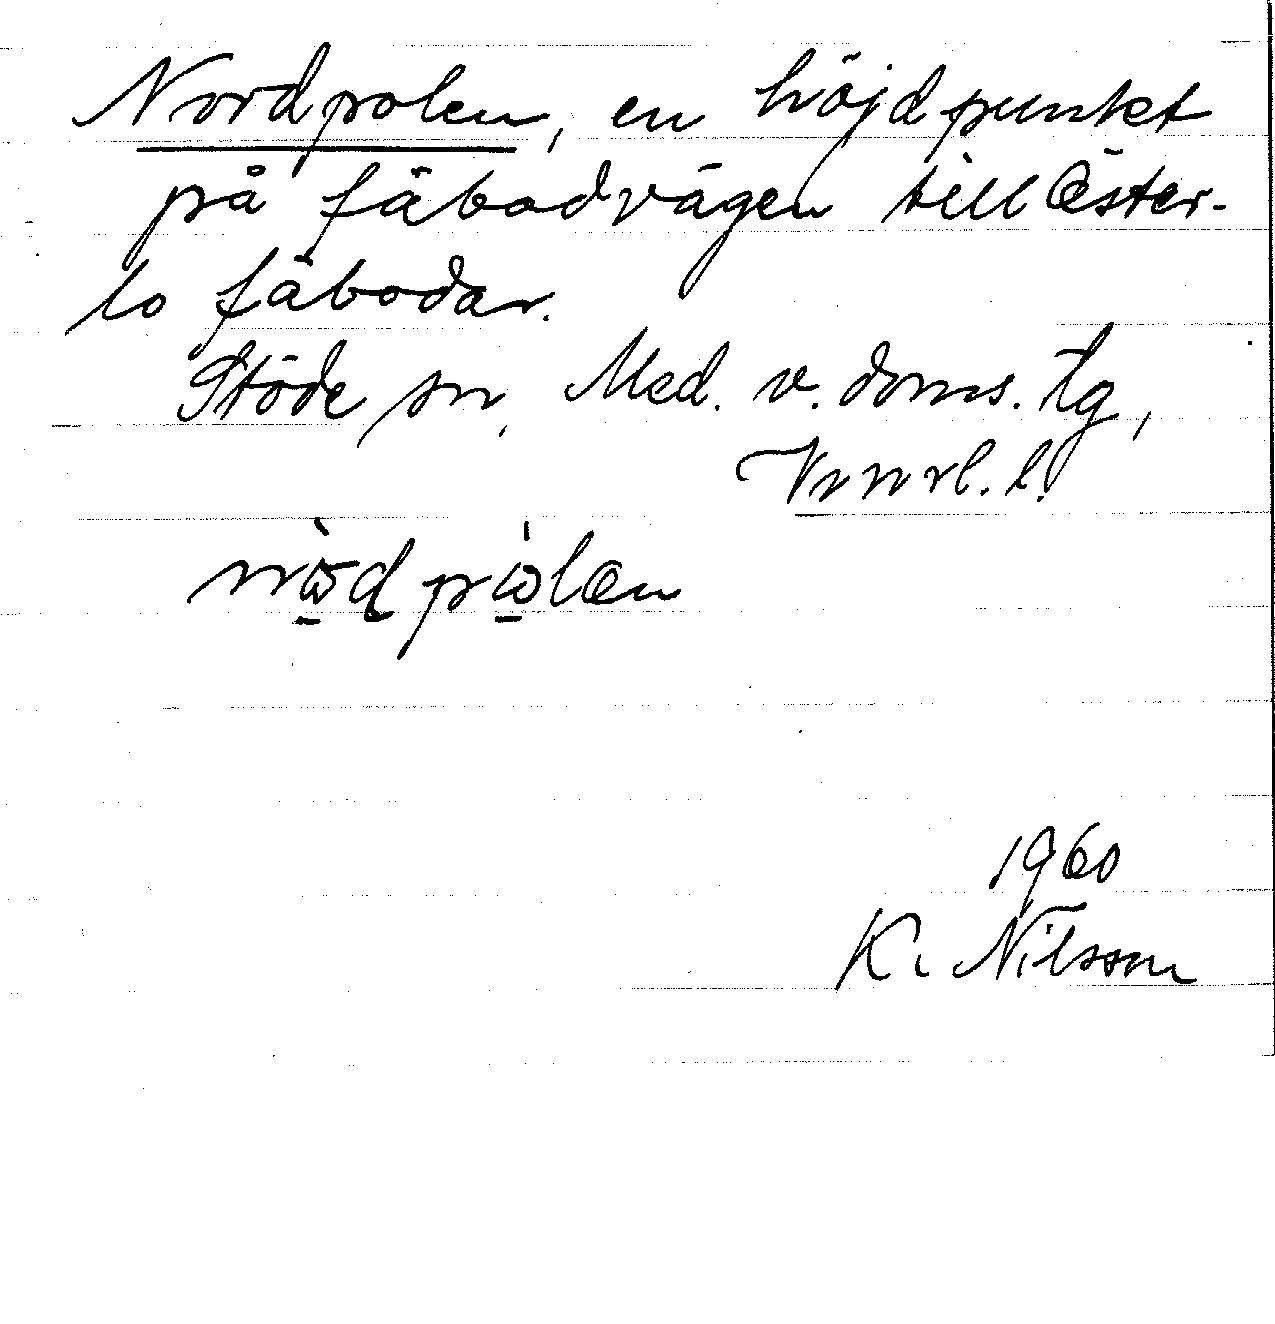 Nordpolen, en höjdpunkt
på fäbodvägen till Öster-
lo fäbodar.
Stöde sn, Med. v. doms. tg,
Vnrl. l.
1960
K. Nilsson